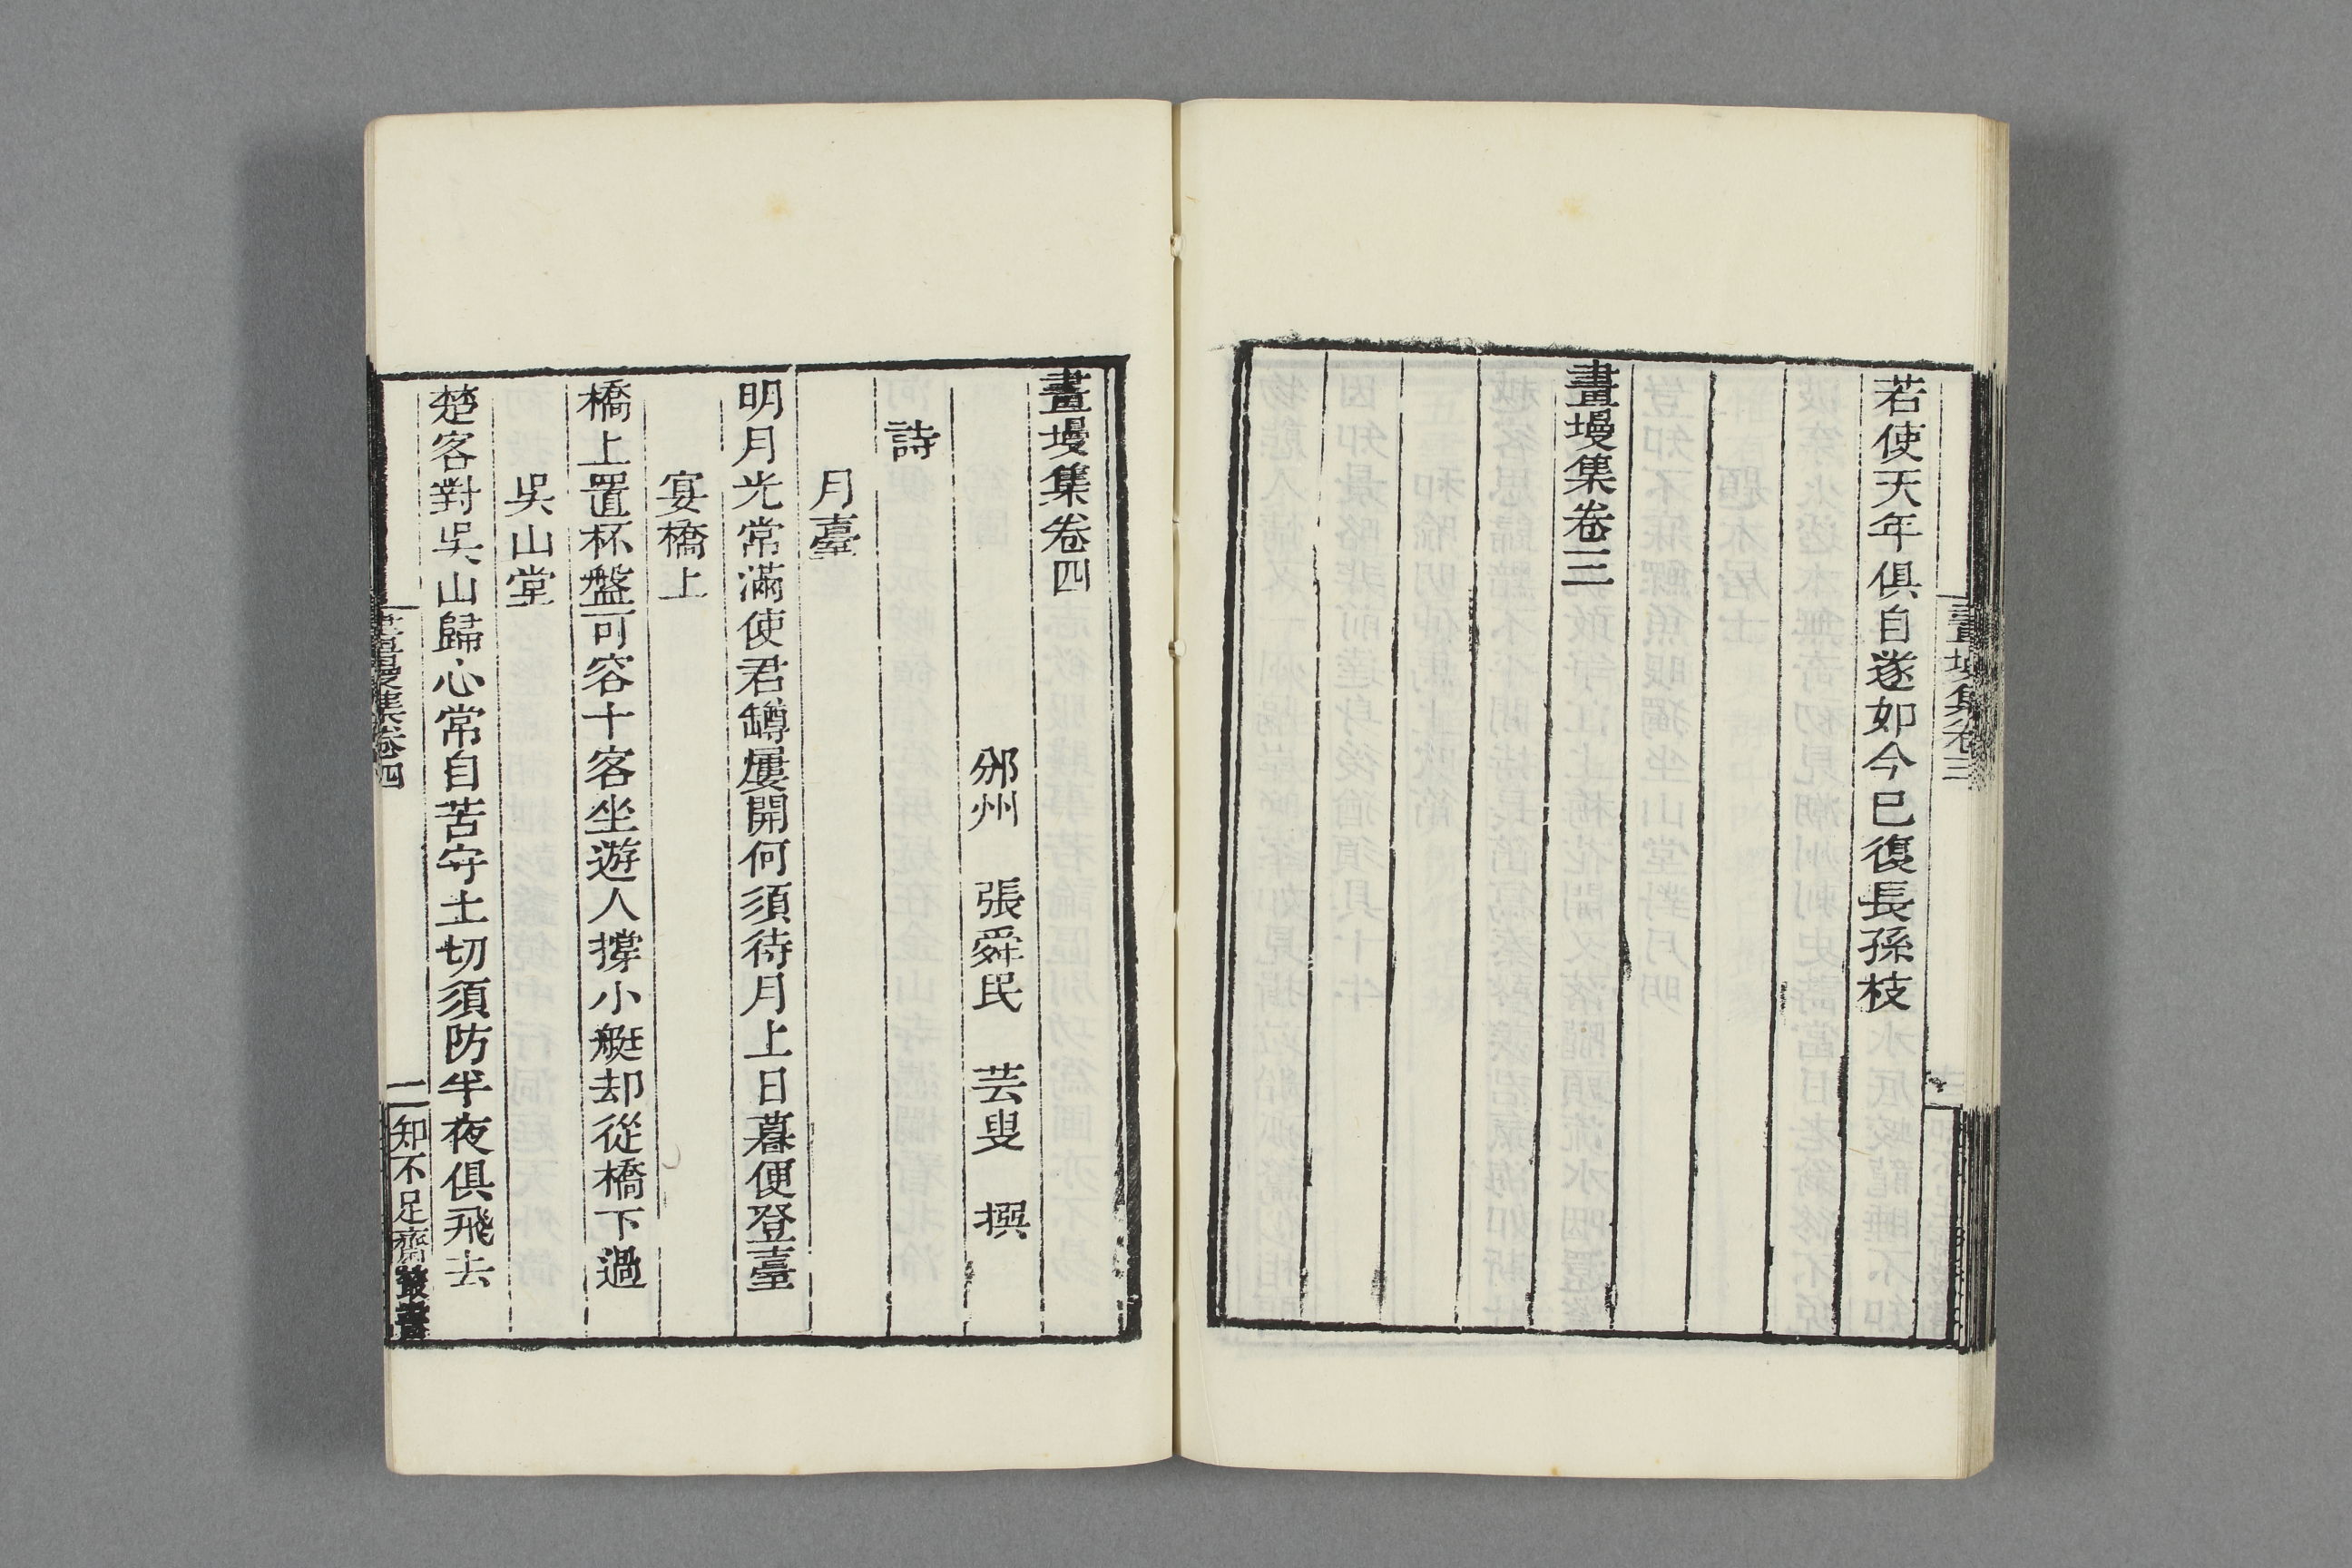 若使天年俱自遂如今已復長孫枝
畫墁集卷三
畫墁集卷三
畫墁集卷四
邠州 張舜民 芸叟 撰
詩
月臺
明月光常滿使君罇屢開何須待月上日暮便登臺
宴橋上
橋上置杯盤可容十客坐遊人撐小艇却從橋下過
吳山堂
楚客對吳山歸心常自苦守土切須防半夜俱飛去
畫墁集卷四
一
知不足齋叢書